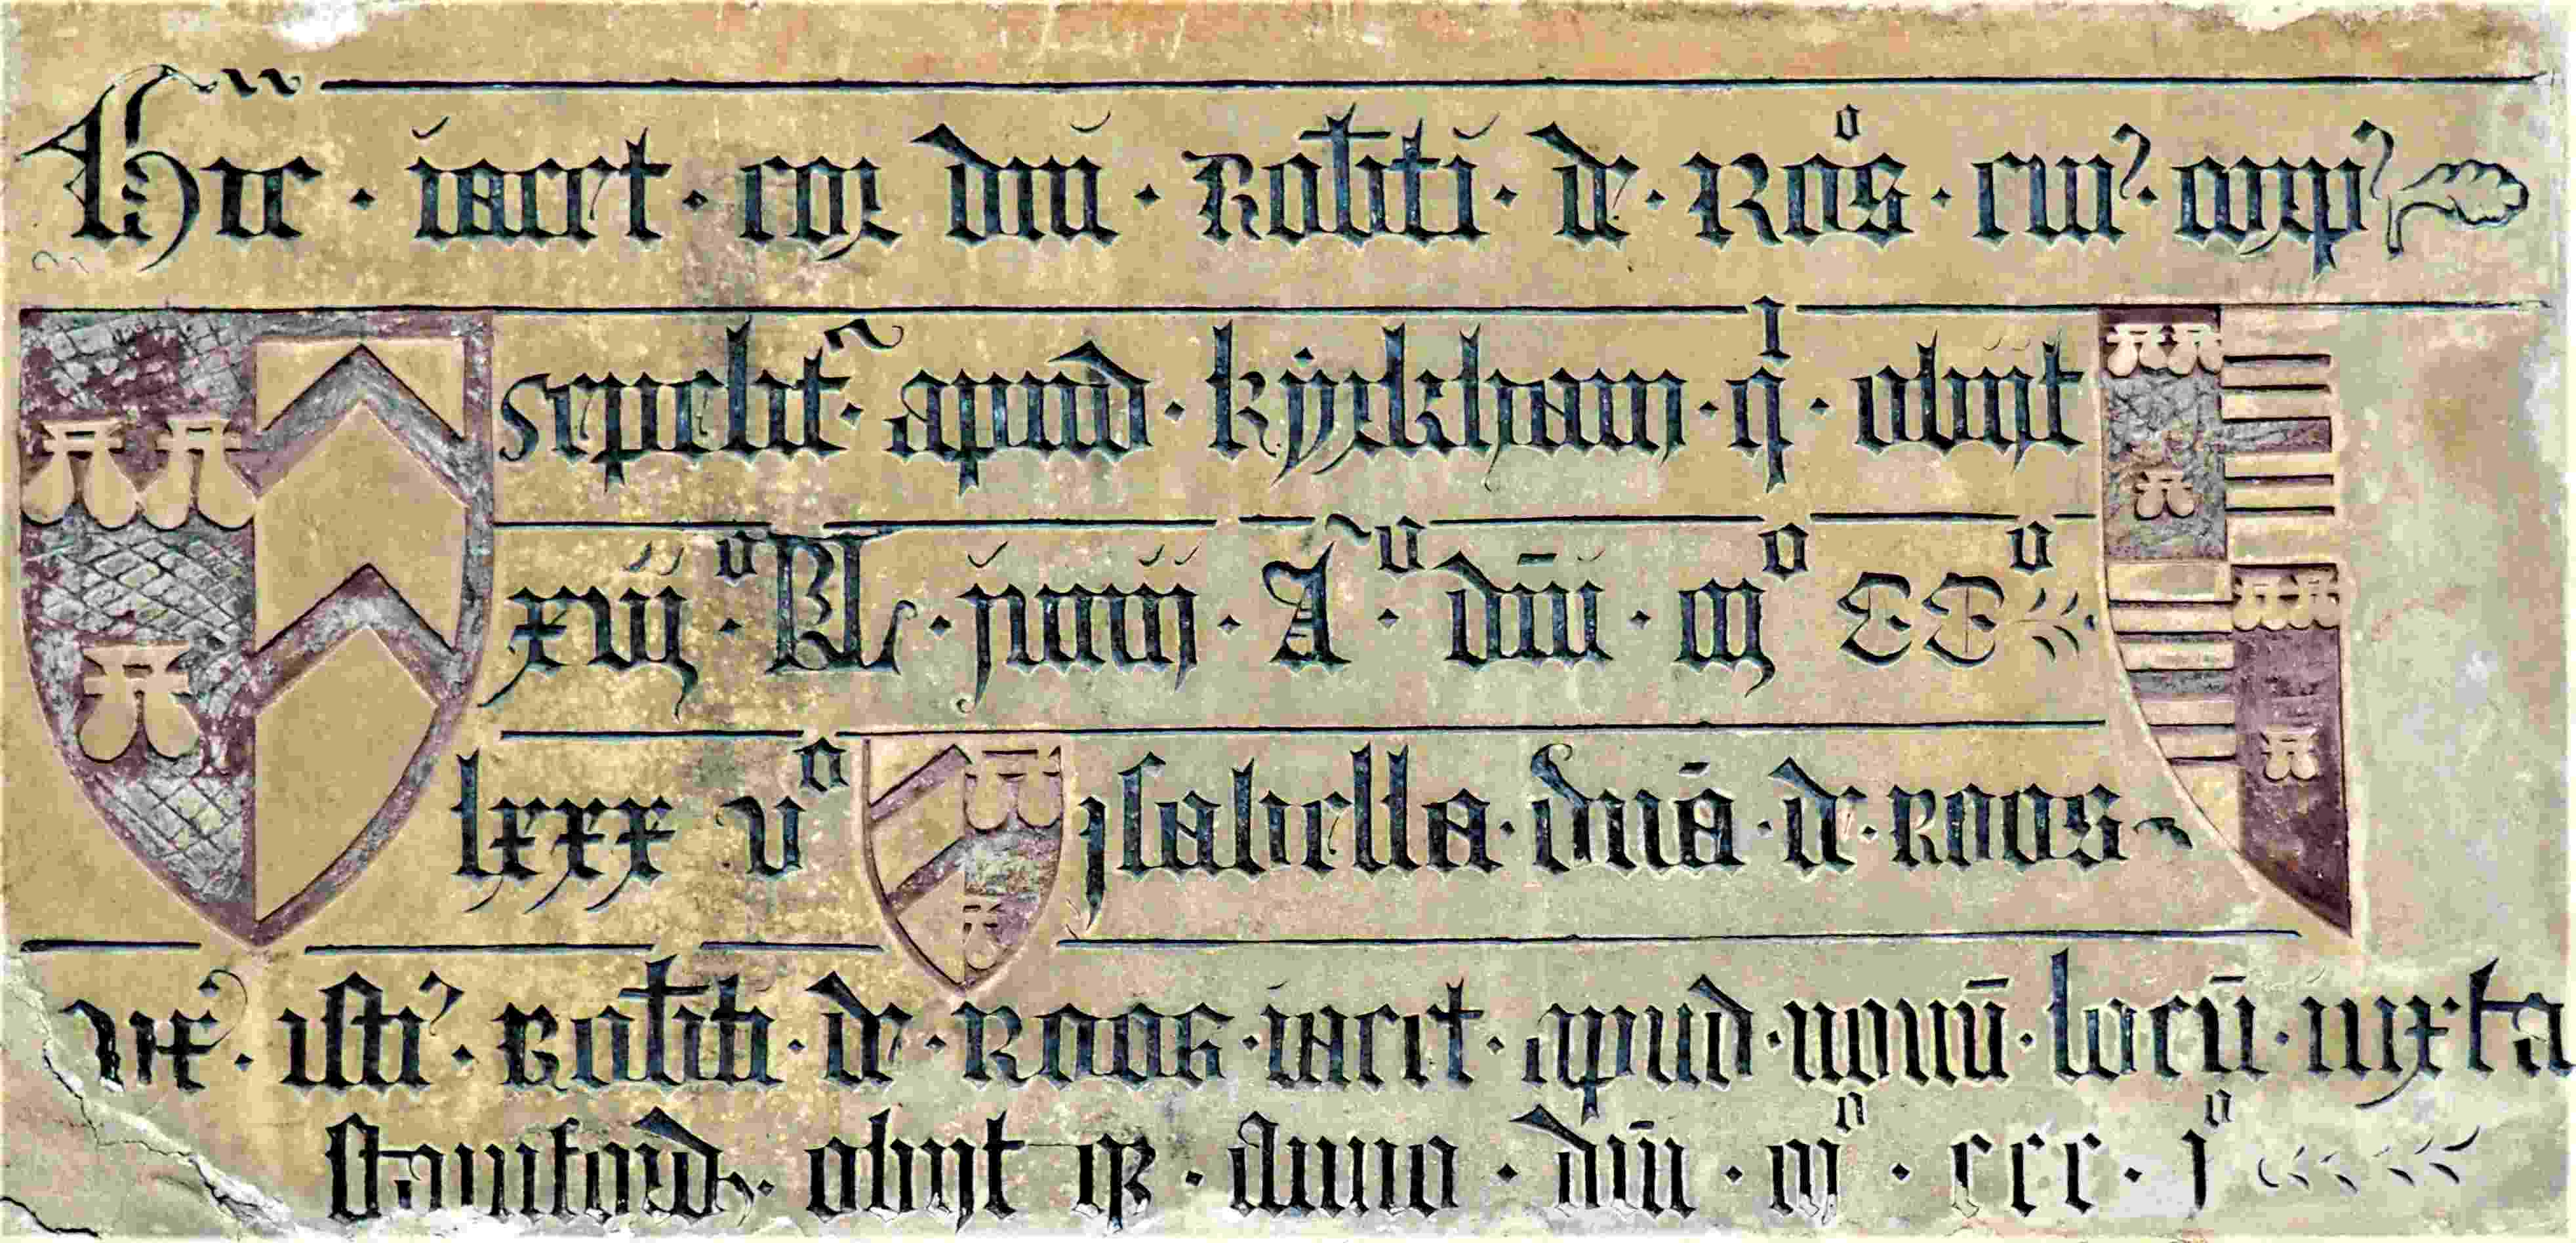 Hic · iacet · cor dñi · Robti · de · Roos · cui' · corp'
sepelit~ · apud · kyrkham · qi · obijt
xvijo · kL · junij · Ao · dñi · mo CCo
lxxx vo Isabella · dña · de · roos
ux' · isti' · Robti · de · Roos · iacet · apud · nouū · locū · iuxta
stamford · obijt · Ao · dñi · mo · ccc · jo